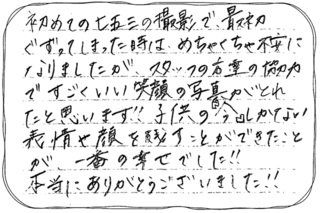 初めての七五三の撮影で、最初
ぐずってしまった時は、めちゃくちゃ不安に
なりましたが、スタッフの方達の協力
ですごくいい笑顔の写真がとれ
たと思います!! 子供の今しかない
表情や顔を残すことができたこと
が、一番の幸せでした!!
本当にありがとうございました!!